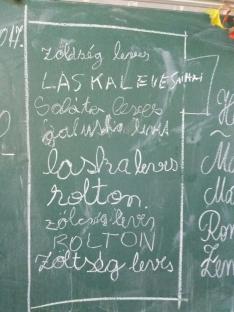 2017.
zöldség leves
LASKALEVES
Saláta leves
galuska leves
laskaleves
rolton.
zölcség leves
ROLTON
zöltség leves